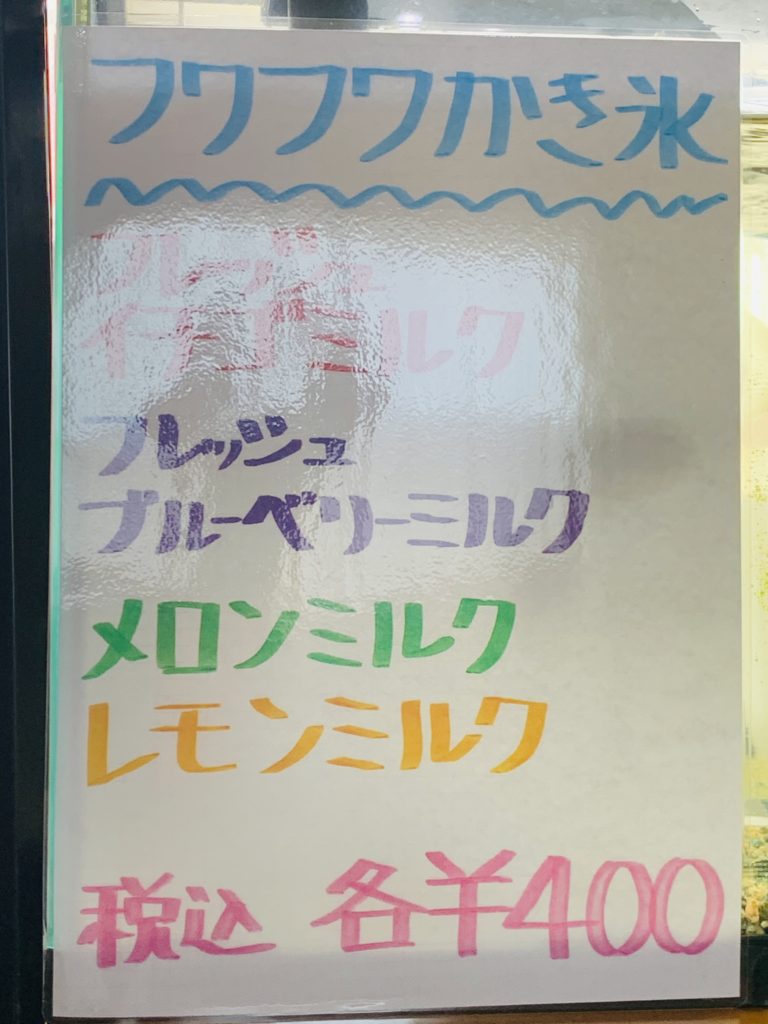 フワフワかき氷
フレッシュ
イチゴミルク
フレッシュ
ブルーベリーミルク
メロンミルク
レモンミルク
税込 各¥400